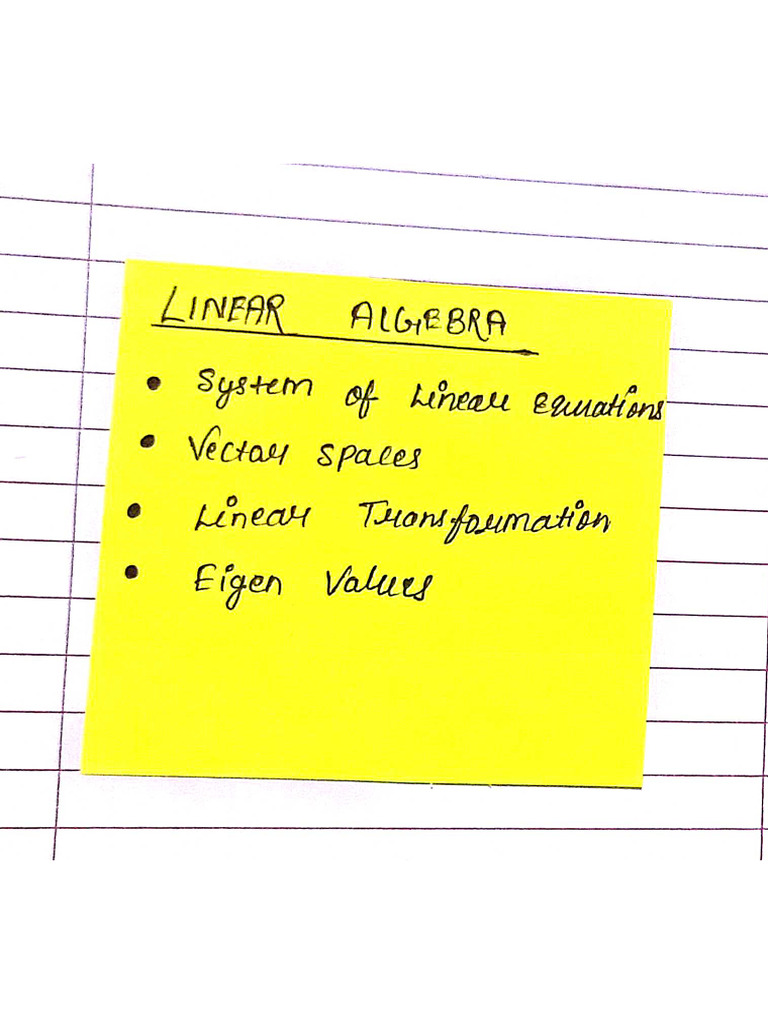 LINEAR ALGEBRA
• System of Linear Equations
• Vector Spaces
• Linear Transformation
• Eigen Values